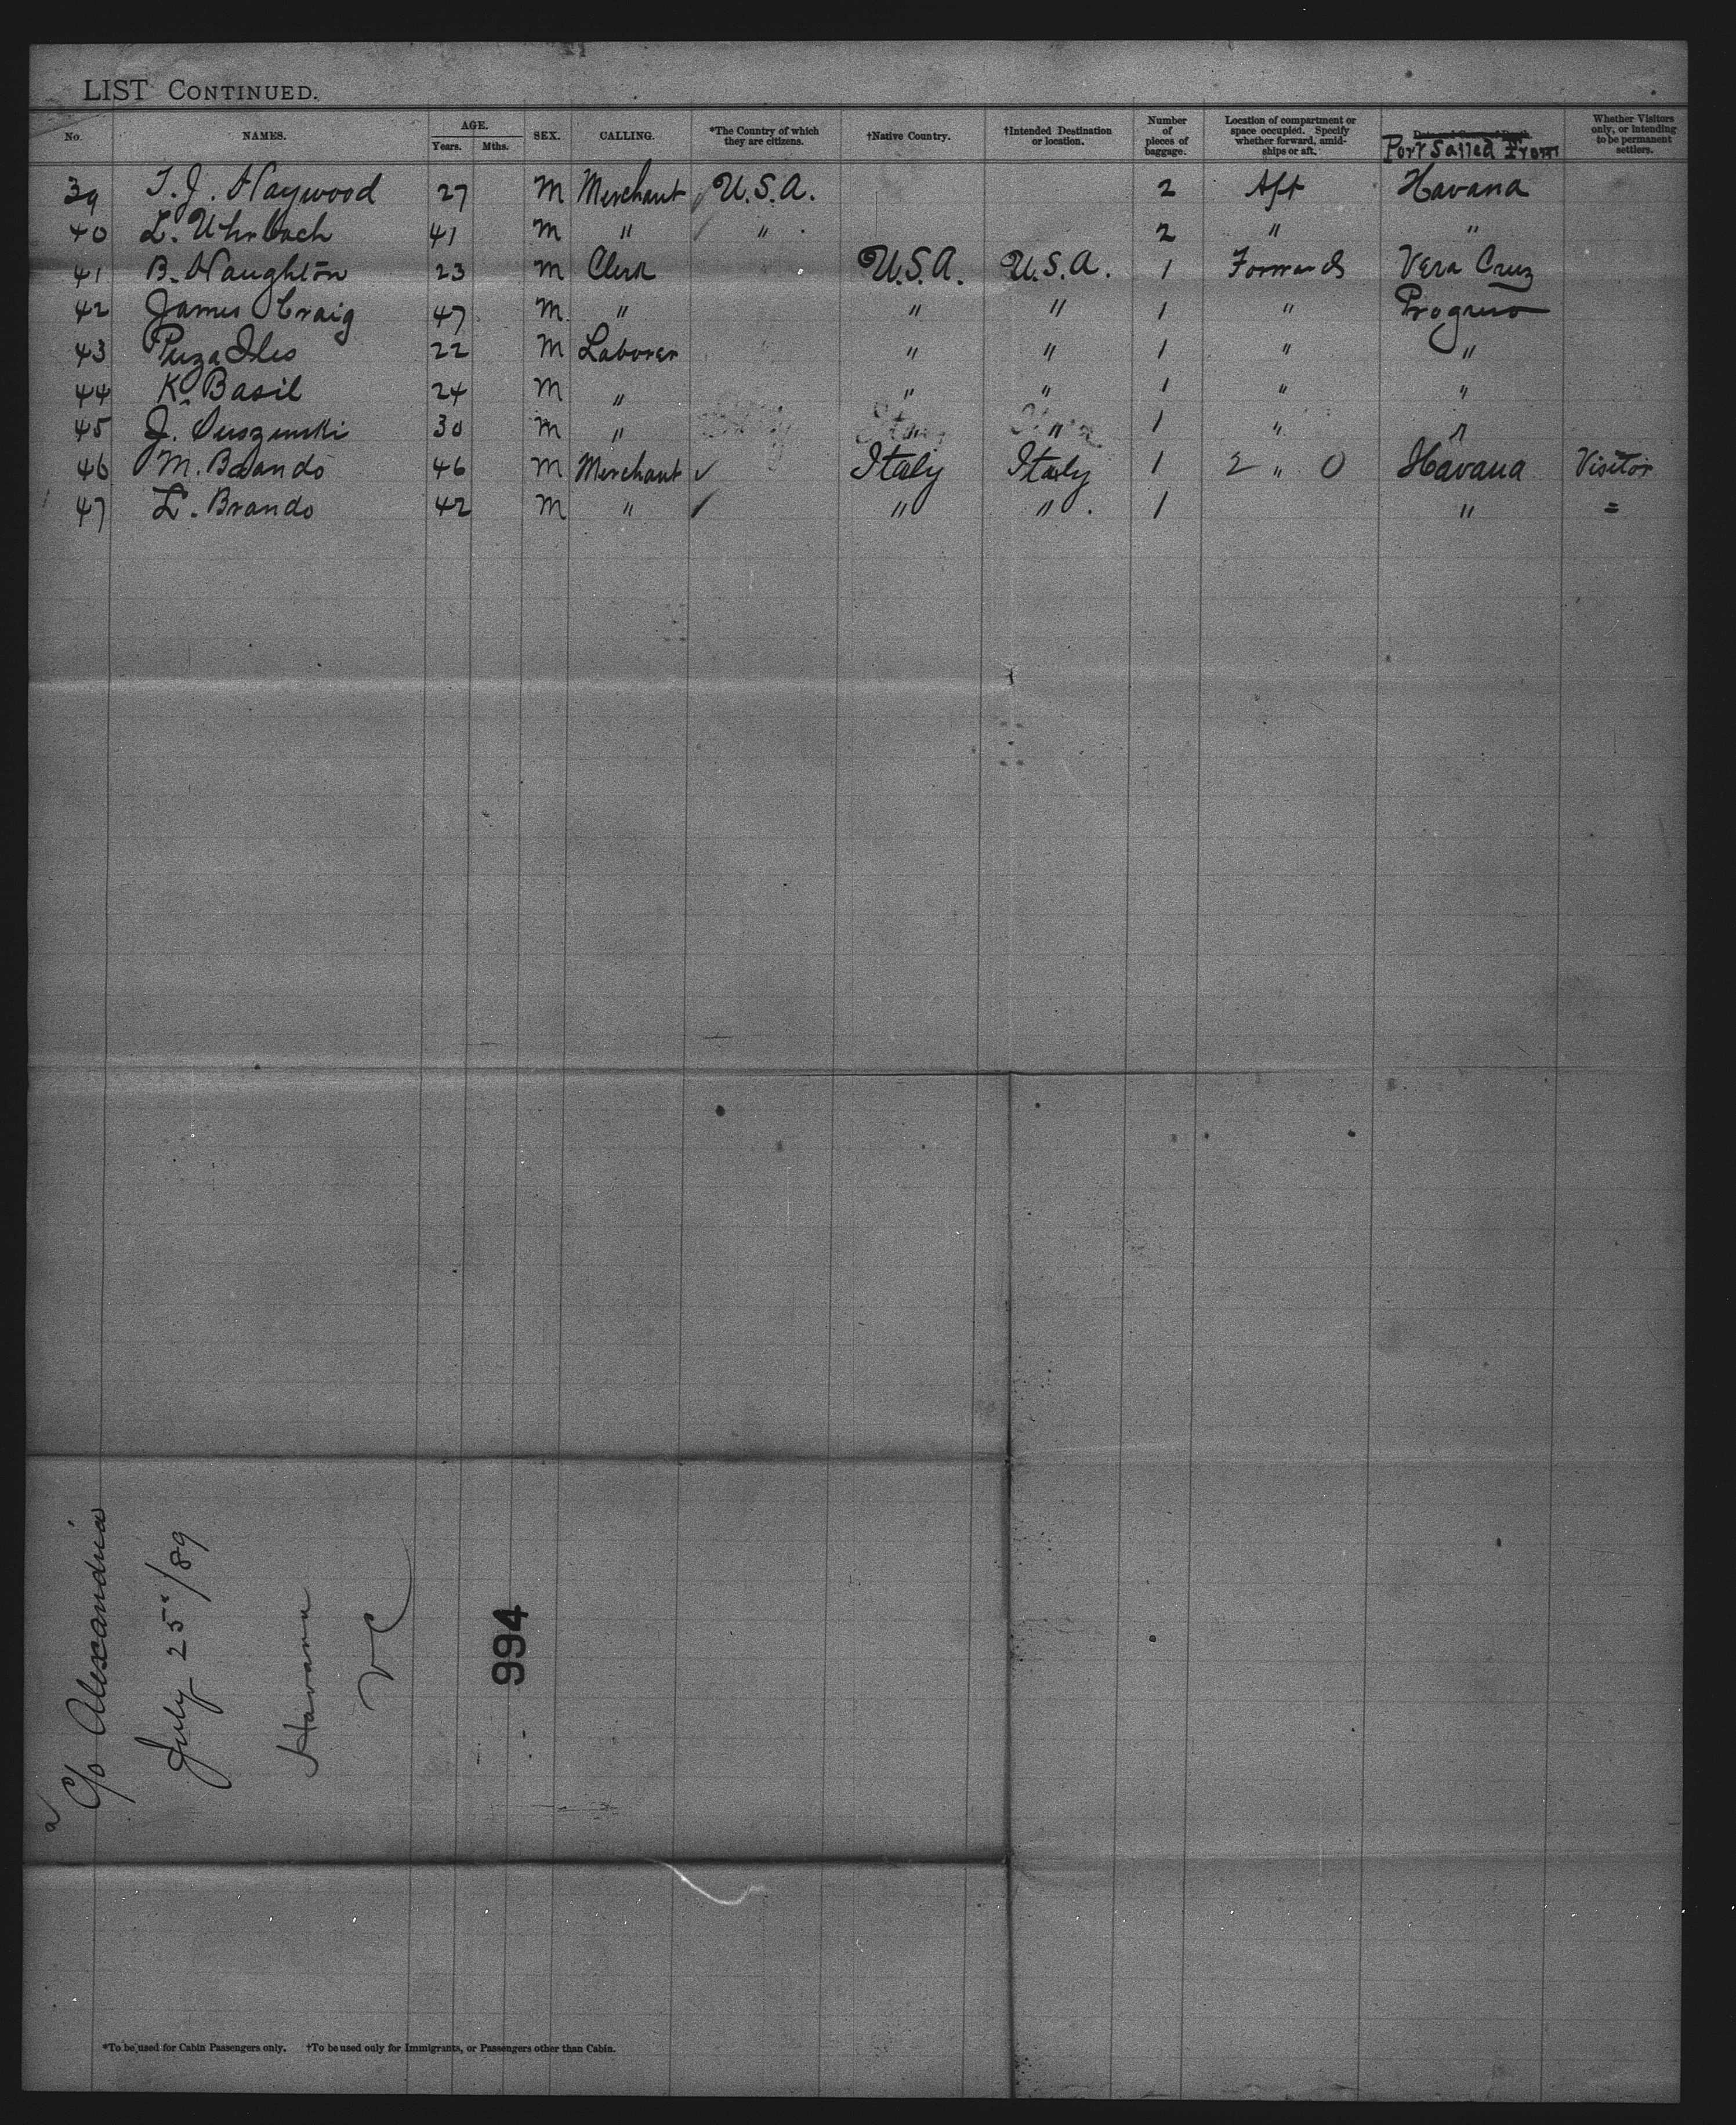 LIST CONTINUED.
No. NAMES. AGE. Years. Mths. SEX. CALLING. *The Country of which they are citizens. †Native Country. †Intended Destination or location. Number of pieces of baggage. Location of compartment or space occupied. Specify whether forward, amidships or aft. Port Sailed From Whether Visitors only, or intending to be permanent settlers.
39 T. J. Haywood 27 M Merchant U.S.A. 2 Aft Havana
40 L. Uhrbach 41 M " " 2 " "
41 B. Naughton 23 M Clerk U.S.A. U.S.A. 1 Forwards Vera Cruz
42 James Craig 47 M. " " " 1 " Progreso
43 22 M Laborer " " 1 " "
44 K. Basil 24 M " " " 1 " "
45 J. 30 M " " " 1 " "
46 M. Brando 46 M Merchant ✓ Italy Italy 1 2 " 0 Havana Visitor
47 L. Brando 42 M " ✓ " " 1 " =
C/o Alexandria
July 25"/89
Havana
994
*To be used for Cabin Passengers only. †To be used only for Immigrants, or Passengers other than Cabin.